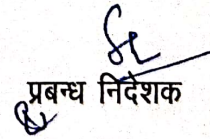 प्रबन्ध निदेशक